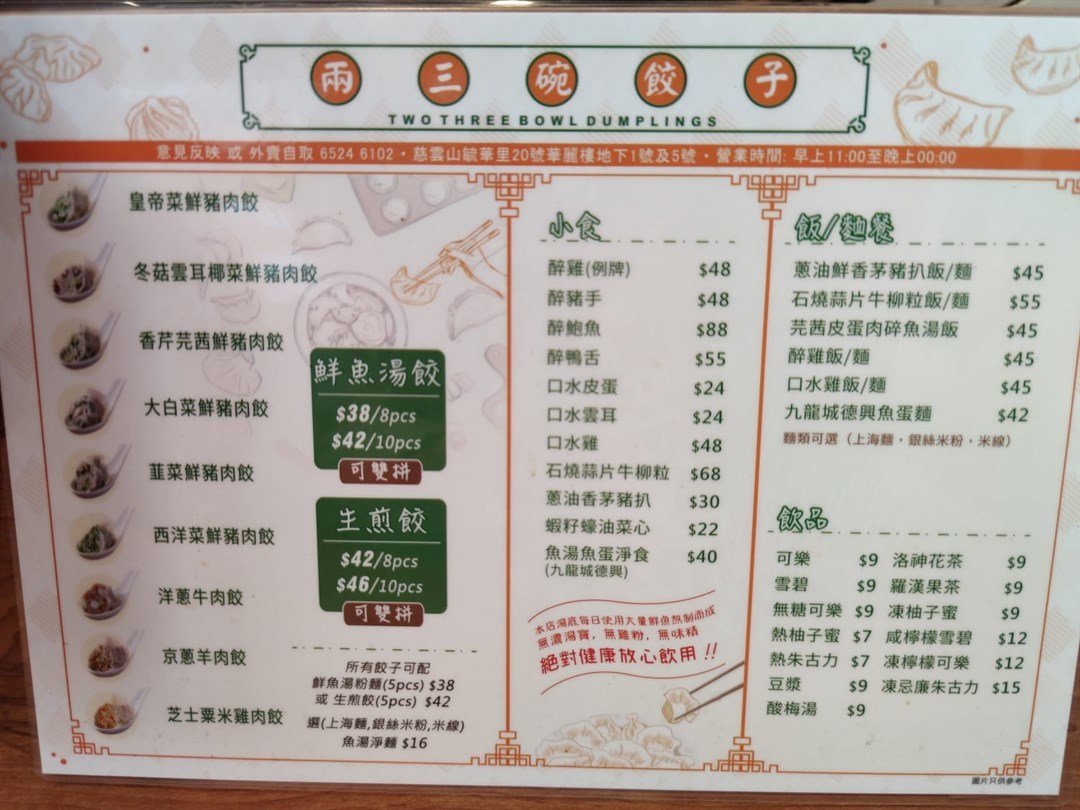 兩三碗餃子
TWO THREE BOWL DUMPLINGS
意見反映 或 外賣自取 6524 6102・慈雲山毓華里20號華麗樓地下1號及5號・營業時間: 早上11:00至晚上00:00
皇帝菜鮮豬肉餃
冬菇雲耳椰菜鮮豬肉餃
香芹芫茜鮮豬肉餃
大白菜鮮豬肉餃
韮菜鮮豬肉餃
西洋菜鮮豬肉餃
洋蔥牛肉餃
京蔥羊肉餃
芝士粟米雞肉餃
鮮魚湯餃
$38/8pcs
$42/10pcs
可雙拼
生煎餃
$42/8pcs
$46/10pcs
可雙拼
所有餃子可配
鮮魚湯粉麵(5pcs) $38
或 生煎餃(5pcs) $42
選(上海麵,銀絲米粉,米線)
魚湯淨麵 $16
小食
醉雞(例牌) $48
醉豬手 $48
醉鮑魚 $88
醉鴨舌 $55
口水皮蛋 $24
口水雲耳 $24
口水雞 $48
石燒蒜片牛柳粒 $68
蔥油香茅豬扒 $30
蝦籽蠔油菜心 $22
魚湯魚蛋淨食 $40
(九龍城德興)
本店湯底每日使用大量鮮魚熬制而成
無濃湯寶，無雞粉，無味精
絕對健康放心飲用 !!
飯/麵餐
蔥油鮮香茅豬扒飯/麵 $45
石燒蒜片牛柳粒飯/麵 $55
芫茜皮蛋肉碎魚湯飯 $45
醉雞飯/麵 $45
口水雞飯/麵 $45
九龍城德興魚蛋麵 $42
麵類可選（上海麵，銀絲米粉，米線）
飲品
可樂 $9 洛神花茶 $9
雪碧 $9 羅漢果茶 $9
無糖可樂 $9 凍柚子蜜 $9
熱柚子蜜 $7 咸檸檬雪碧 $12
熱朱古力 $7 凍檸檬可樂 $12
豆漿 $9 凍忌廉朱古力 $15
酸梅湯 $9
圖片只供參考